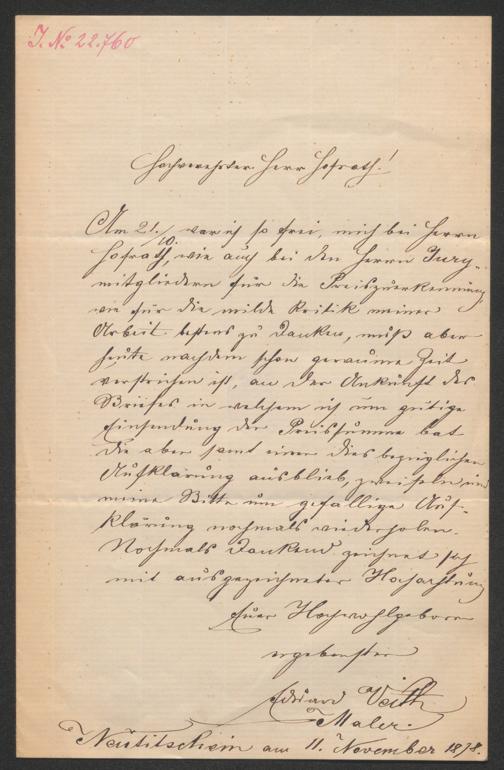 J. No 22.760
Hochverehrter Herr Hofrath!
Am 21./10. war ich so frei, mich bei Herrn
Hofrath, wie auch bei den Herrn Jury-
mitgliedern für die Preiszuerkennung
wie für die milde Kritik meiner
Arbeit bestens zu danken, muß aber
heute nachdem schon geraume Zeit
verstrichen ist, an der Ankunft des
Briefes in welchem ich um gütige
Einsendung der Preissumme bat
die aber samt einer dies bezüglichen
Aufklärung ausblieb, zweifeln und
meine Bitte um gefällige Auf-
klärung nochmals wiederholen.
Nochmals dankend zeichnet sich
mit ausgezeichneter Hochachtung
Euer Hochwohlgeboren
ergebenster
Eduard Veith
Maler.
Neutitschein am 11. November 1878.